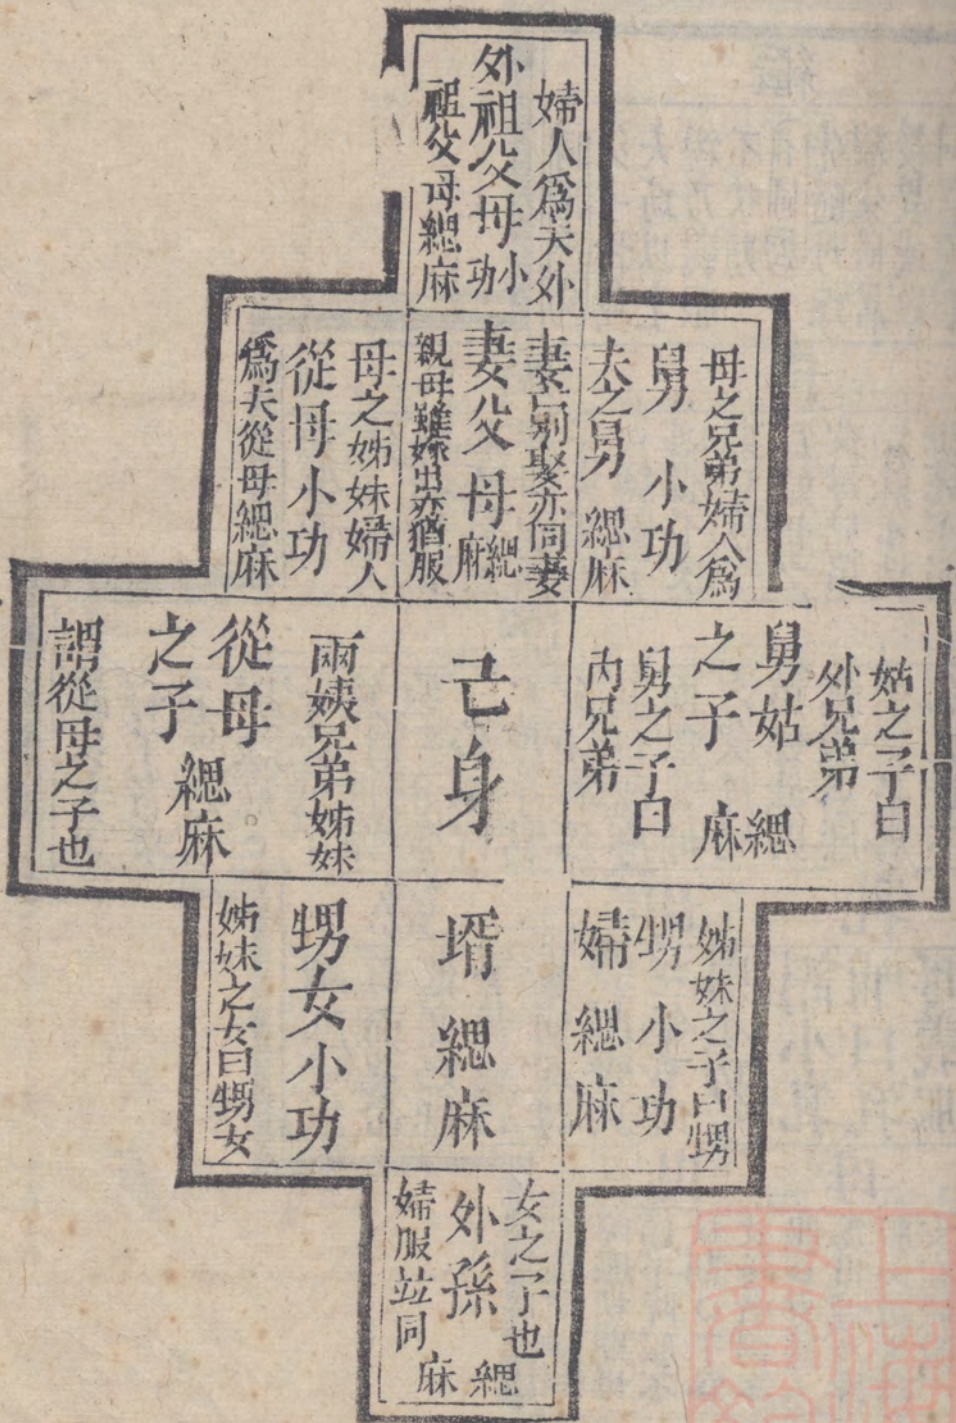 婦人爲夫外
外祖父母小功
祖父母緦麻
母之兄弟婦人爲
舅 小功
夫之舅 緦麻
妻亡別娶亦同妻
妻父母緦麻
親母雖嫁出亦猶服
母之姊妹婦人
從母小功
爲夫從母緦麻
姑之子曰
外兄弟
舅姑
之子 緦麻
舅之子曰
內兄弟
己身
兩姨兄弟姊妹
從母
之子 緦麻
謂從母之子也
姊妹之子曰甥
甥小功
婦緦麻
壻緦麻
甥女小功
姊妹之女曰甥女
女之子也
外孫 緦麻
婦服並同